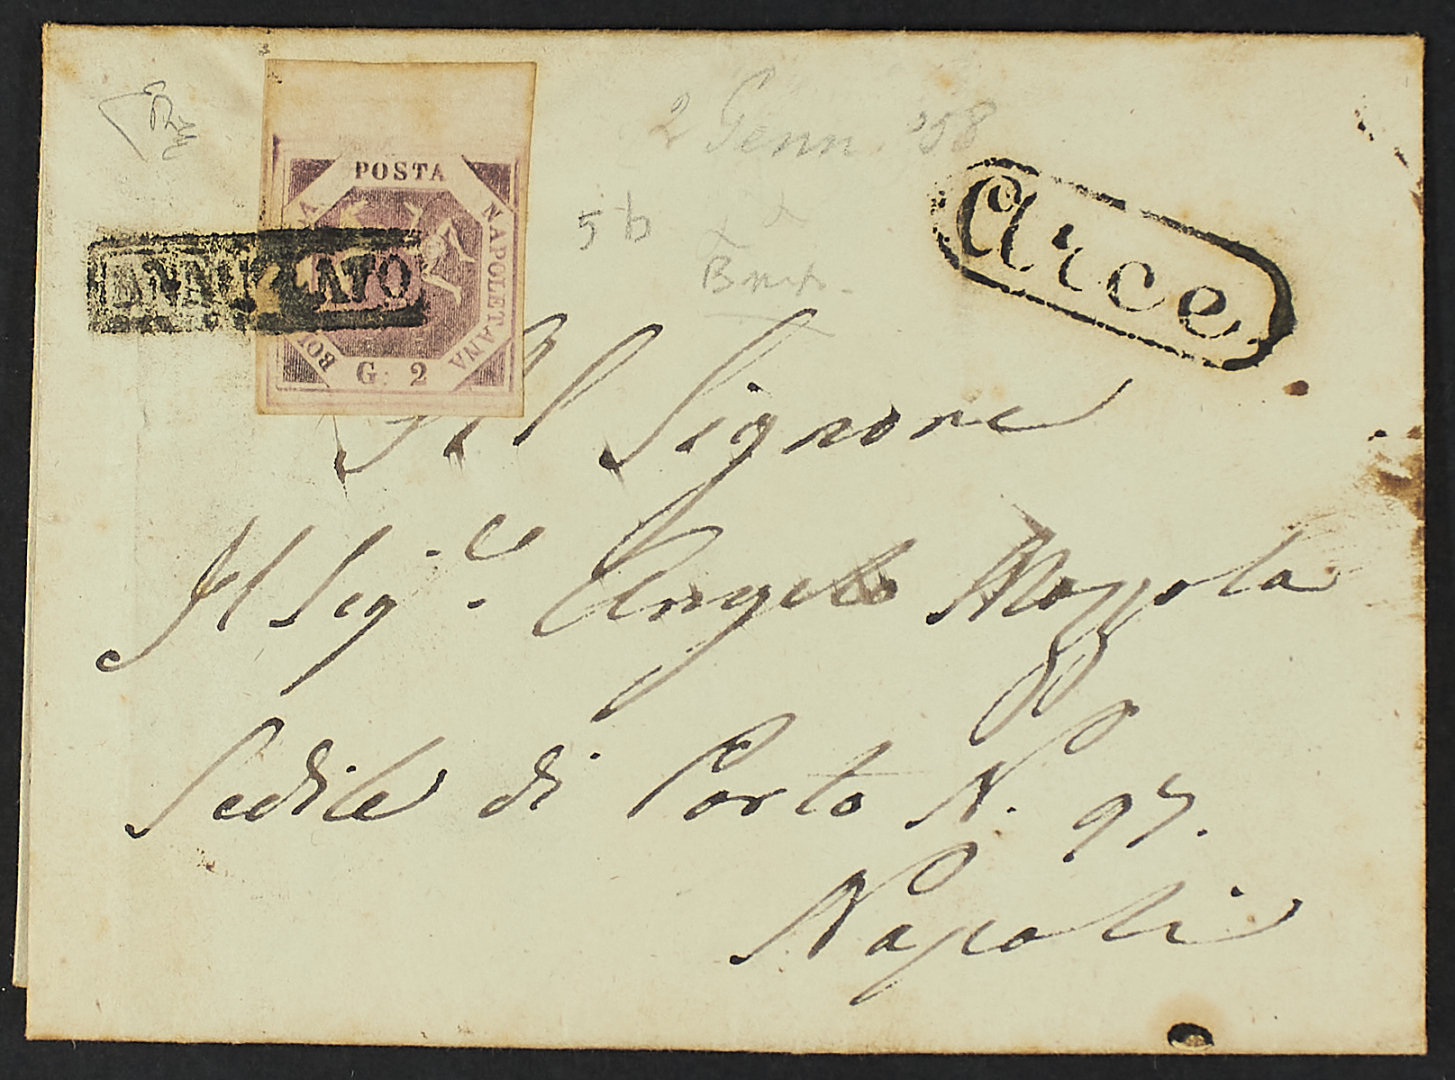 2 Genn '58
POSTA
NAPOLETANA
BO
G. 2
ANNULLATO
5 b
Arce
Al Signore
Il Sig.re Angelo Mazzola
Sedile di Porto N. 97.
Napoli